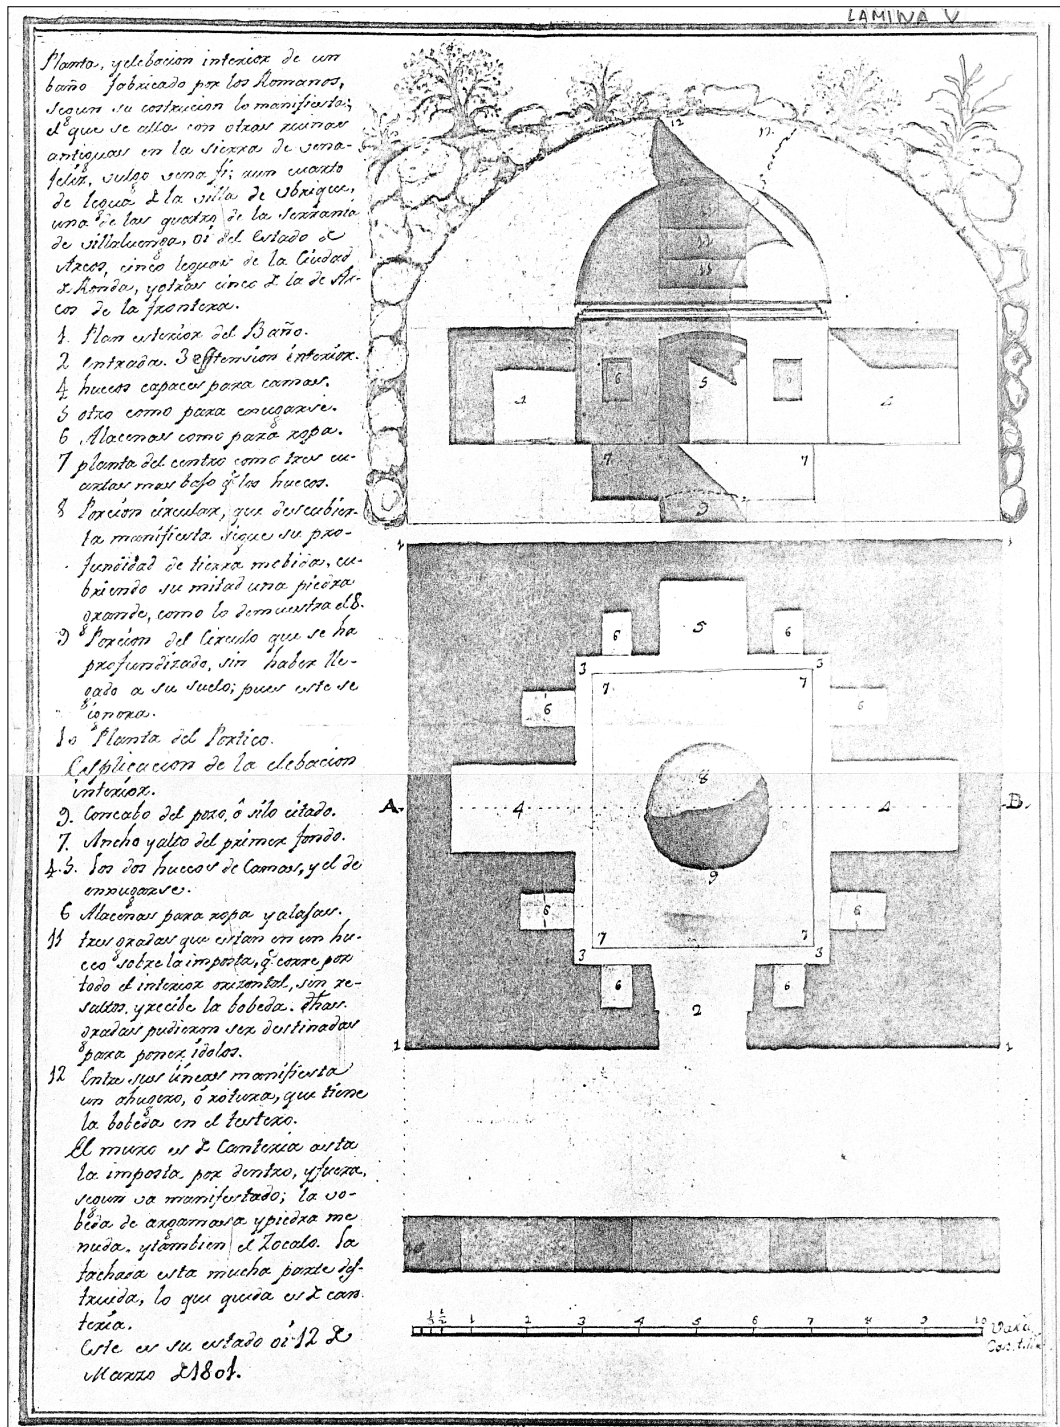 LAMINA V
Planta, yelebacion interior de un
baño fabricado por los Romanos,
segun su costrucion lo manifiesta;
el que se alla con otras ruinas
antiguas en la sierra de vena-
feliz, vulgo vena fi; aun cuarto
de legua d la villa de Vbrique,
una de las quatro de la serrania
de villaluenga, oi del Estado d
Arcos, cinco leguas de la Ciudad
d Ronda, yotras cinco d la de Ar-
cos de la frontera.
1. Plan esterior del Baño.
2 entrada. 3 estension interior.
4 huecos capaces para camas.
5 otro como para enugarse.
6 Alacenas como para ropa.
7 planta del centro como tres cu-
artas mas bajo q los huecos.
8 Porcion circular, que descubier-
ta manifiesta sigue su pro-
fundidad de tierra mebida, cu-
briendo su mitad una piedra
grande, como lo demuestra el 8.
9 Porcion del Circulo que se ha
profundizado, sin haber lle-
gado a su suelo; pues este se
ignora.
10 Planta del Portico.
Esplicacion de la elebacion
interior.
9. Concabo del pozo, ó silo citado.
7. Ancho yalto del primer fondo.
4.5. los dos huecos de Camas, y el de
ennugarse.
6 Alacenas para ropa yalajas.
11 tres gradas que estan en un hu-
eco sobre la imposta, q corre por
todo el interior orizontal, sin re-
saltos, yrecibe la bobeda. dhas
gradas pudieron ser destinadas
para poner idolos.
12 Entre sus lineas manifiesta
un ahugero, ó rotura, que tiene
la bobeda en el testero.
El muro es d Canteria asta
la imposta por dentro, yfuera,
segun va manifestado; la vo-
beda de argamasa ypiedra me
nuda, ytambien el Zocalo. la
fachada esta mucha parte des-
truida, lo que queda es d can-
teria.
Este es su estado oi 12 d
Marzo d 1801.
12 12
11
11
11
4 6 5 6 4
7 7
9
1 1
6 5 6
3 3
7 7
6 6
8
A. 4 4 B.
9
6 6
7 7
3 3
6 6
2
1 1
10
1 2 3 4 5 6 7 8 9 10 Varas